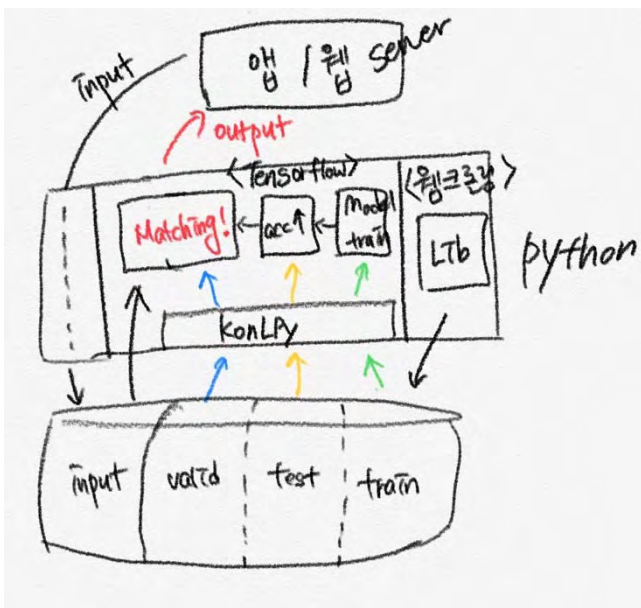 앱 / 웹 server
input
output
<Tensorflow>
<웹크롤링>
Matching!
acc↑
Model
train
Lib
python
KonLPy
input
valid
test
train